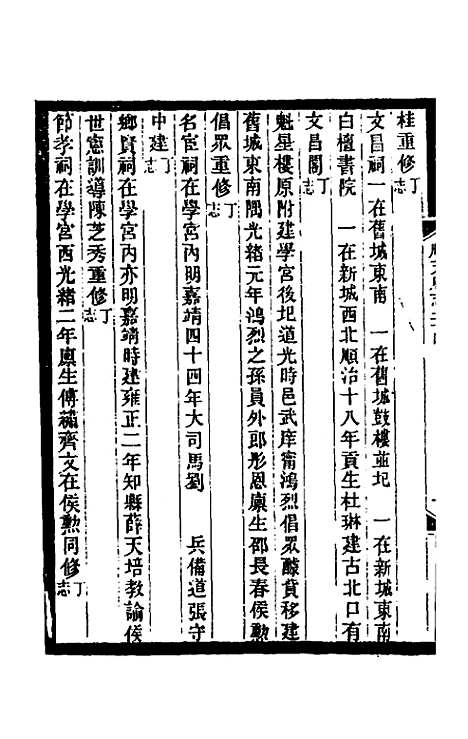 桂重修丁志
文昌祠一在舊城東南　一在舊城鼓樓並圮　一在新城東南
白檀書院　一在新城西北順治十八年貢生杜琳建古北口有
文昌閣丁志
魁星樓原附建學宮後圮道光時邑武庠甯鴻烈倡眾醵貲移建
舊城東南隅光緒元年鴻烈之孫員外郎彤恩廩生邵長春侯勲
倡眾重修丁志
名宦祠在學宮內明嘉靖四十四年大司馬劉　　兵備道張守
中建丁志
鄉賢祠在學宮內亦明嘉靖時建雍正二年知縣薛天培教諭侯
世憲訓導陳芝秀重修丁志
節孝祠在學宮西光緒二年廩生傅蘊齊文在侯勲同修丁志